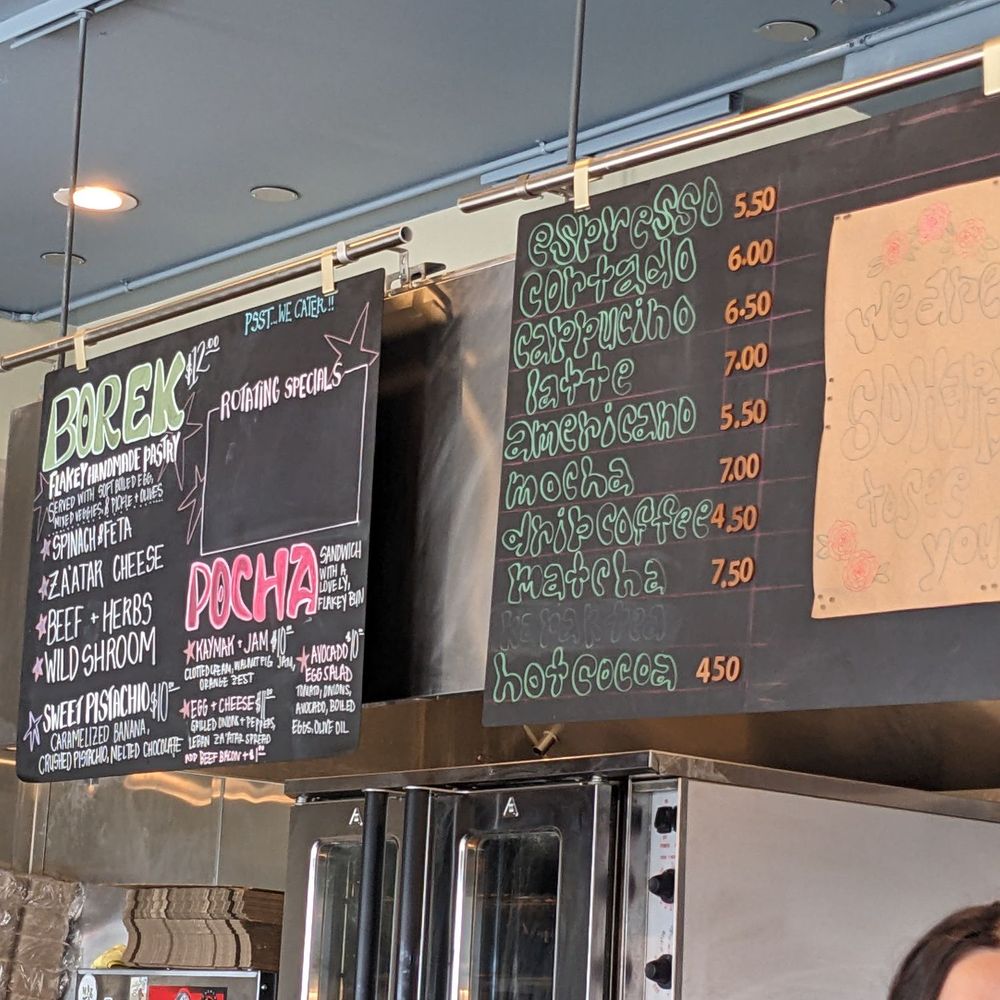 PSST... WE CATER!!
BOREK $12.00
FLAKEY HANDMADE PASTRY
SERVED WITH SOFT BOILED EGG,
MIXED VEGGIES, & PICKLE + OLIVES
SPINACH & FETA
ZA'ATAR CHEESE
BEEF + HERBS
WILD SHROOM
SWEET PISTACHIO $10
CARAMELIZED BANANA,
CRUSHED PISTACHIO, MELTED CHOCOLATE
ROTATING SPECIALS
POCHA
SANDWICH
WITH A
LOVELY,
FLAKEY BUN
KAYMAK + JAM $10
CLOTTED CREAM, WALNUT FIG JAM,
ORANGE ZEST
EGG + CHEESE $11
GRILLED ONION + PEPPERS
LEBAN ZA'ATAR SPREAD
ADD BEEF BACON +$1
AVOCADO $10
EGG SALAD
TOMATO, ONIONS,
AVOCADO, BOILED
EGGS, OLIVE OIL
espresso 5.50
cortado 6.00
cappucino 6.50
latte 7.00
americano 5.50
mocha 7.00
drip coffee 4.50
matcha 7.50
hot cocoa 450
we are
SO HAP
to see
you